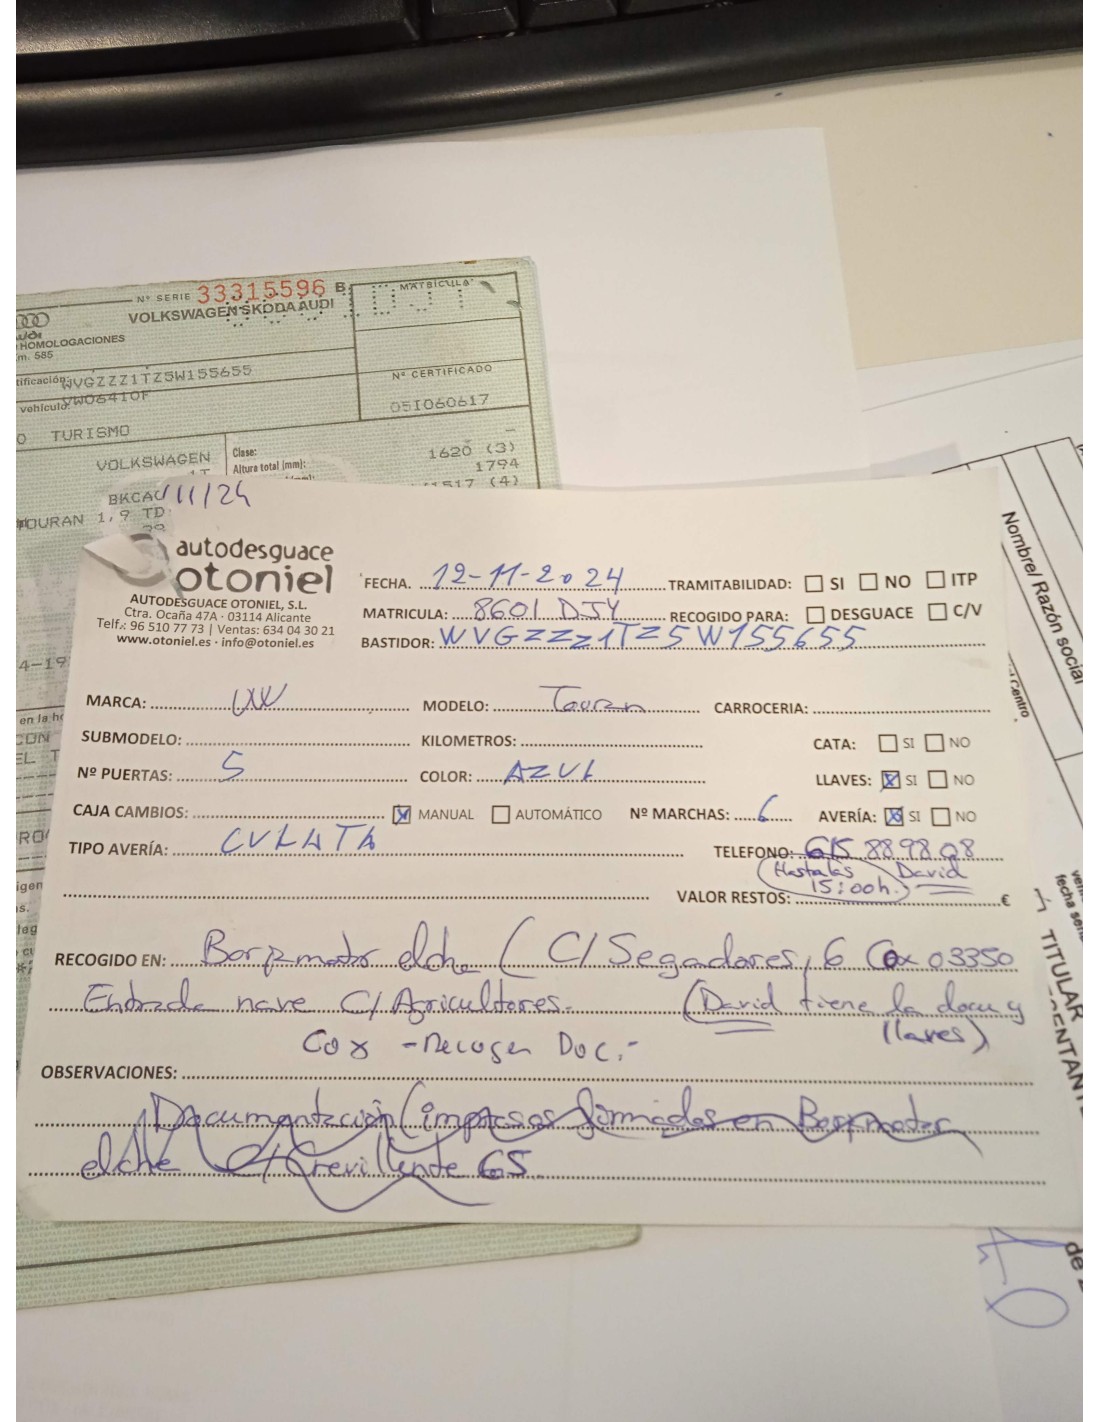 Nº SERIE 33315596 B
MATRICULA
VOLKSWAGEN SKODA AUDI
HOMOLOGACIONES
m. 585
tificación: WVGZZZ1TZ5W155655
vehiculo: VW0641OF
Nº CERTIFICADO
05I060617
O TURISMO
VOLKSWAGEN
1T
Clase:
Altura total (mm):
1620 (3)
1794
1517 (4)
BKCAC
TOURAN 1,9 TD
/11/24
autodesguace
otoniel
AUTODESGUACE OTONIEL, S.L.
Ctra. Ocaña 47A · 03114 Alicante
Telf.: 96 510 77 73 | Ventas: 634 04 30 21
www.otoniel.es · info@otoniel.es
FECHA. 12-11-2024 TRAMITABILIDAD: SI NO ITP
MATRICULA: 8601 DJY RECOGIDO PARA: DESGUACE C/V
BASTIDOR: WVGZZZ1TZ5W155655
MARCA: VW MODELO: Touran CARROCERIA:
SUBMODELO: KILOMETROS: CATA: SI NO
Nº PUERTAS: 5 COLOR: AZUL LLAVES: SI NO
CAJA CAMBIOS: MANUAL AUTOMÁTICO Nº MARCHAS: 6 AVERÍA: SI NO
TIPO AVERÍA: CULATA TELEFONO: 615 88 98 08
(Hasta las 15:00h.) David
VALOR RESTOS: €
RECOGIDO EN: Borpmotor elche ( C/ Segadores, 6 Cox 03350
Entrada nave C/ Agricultores. (David tiene la docu y
llaves)
Cox - Recoger Doc.-
OBSERVACIONES:
Documentación (impresos firmados en Borpmotor
elche C/ Crevillente 65
Nombre/ Razón social
Centro
fecha
TITULAR
de